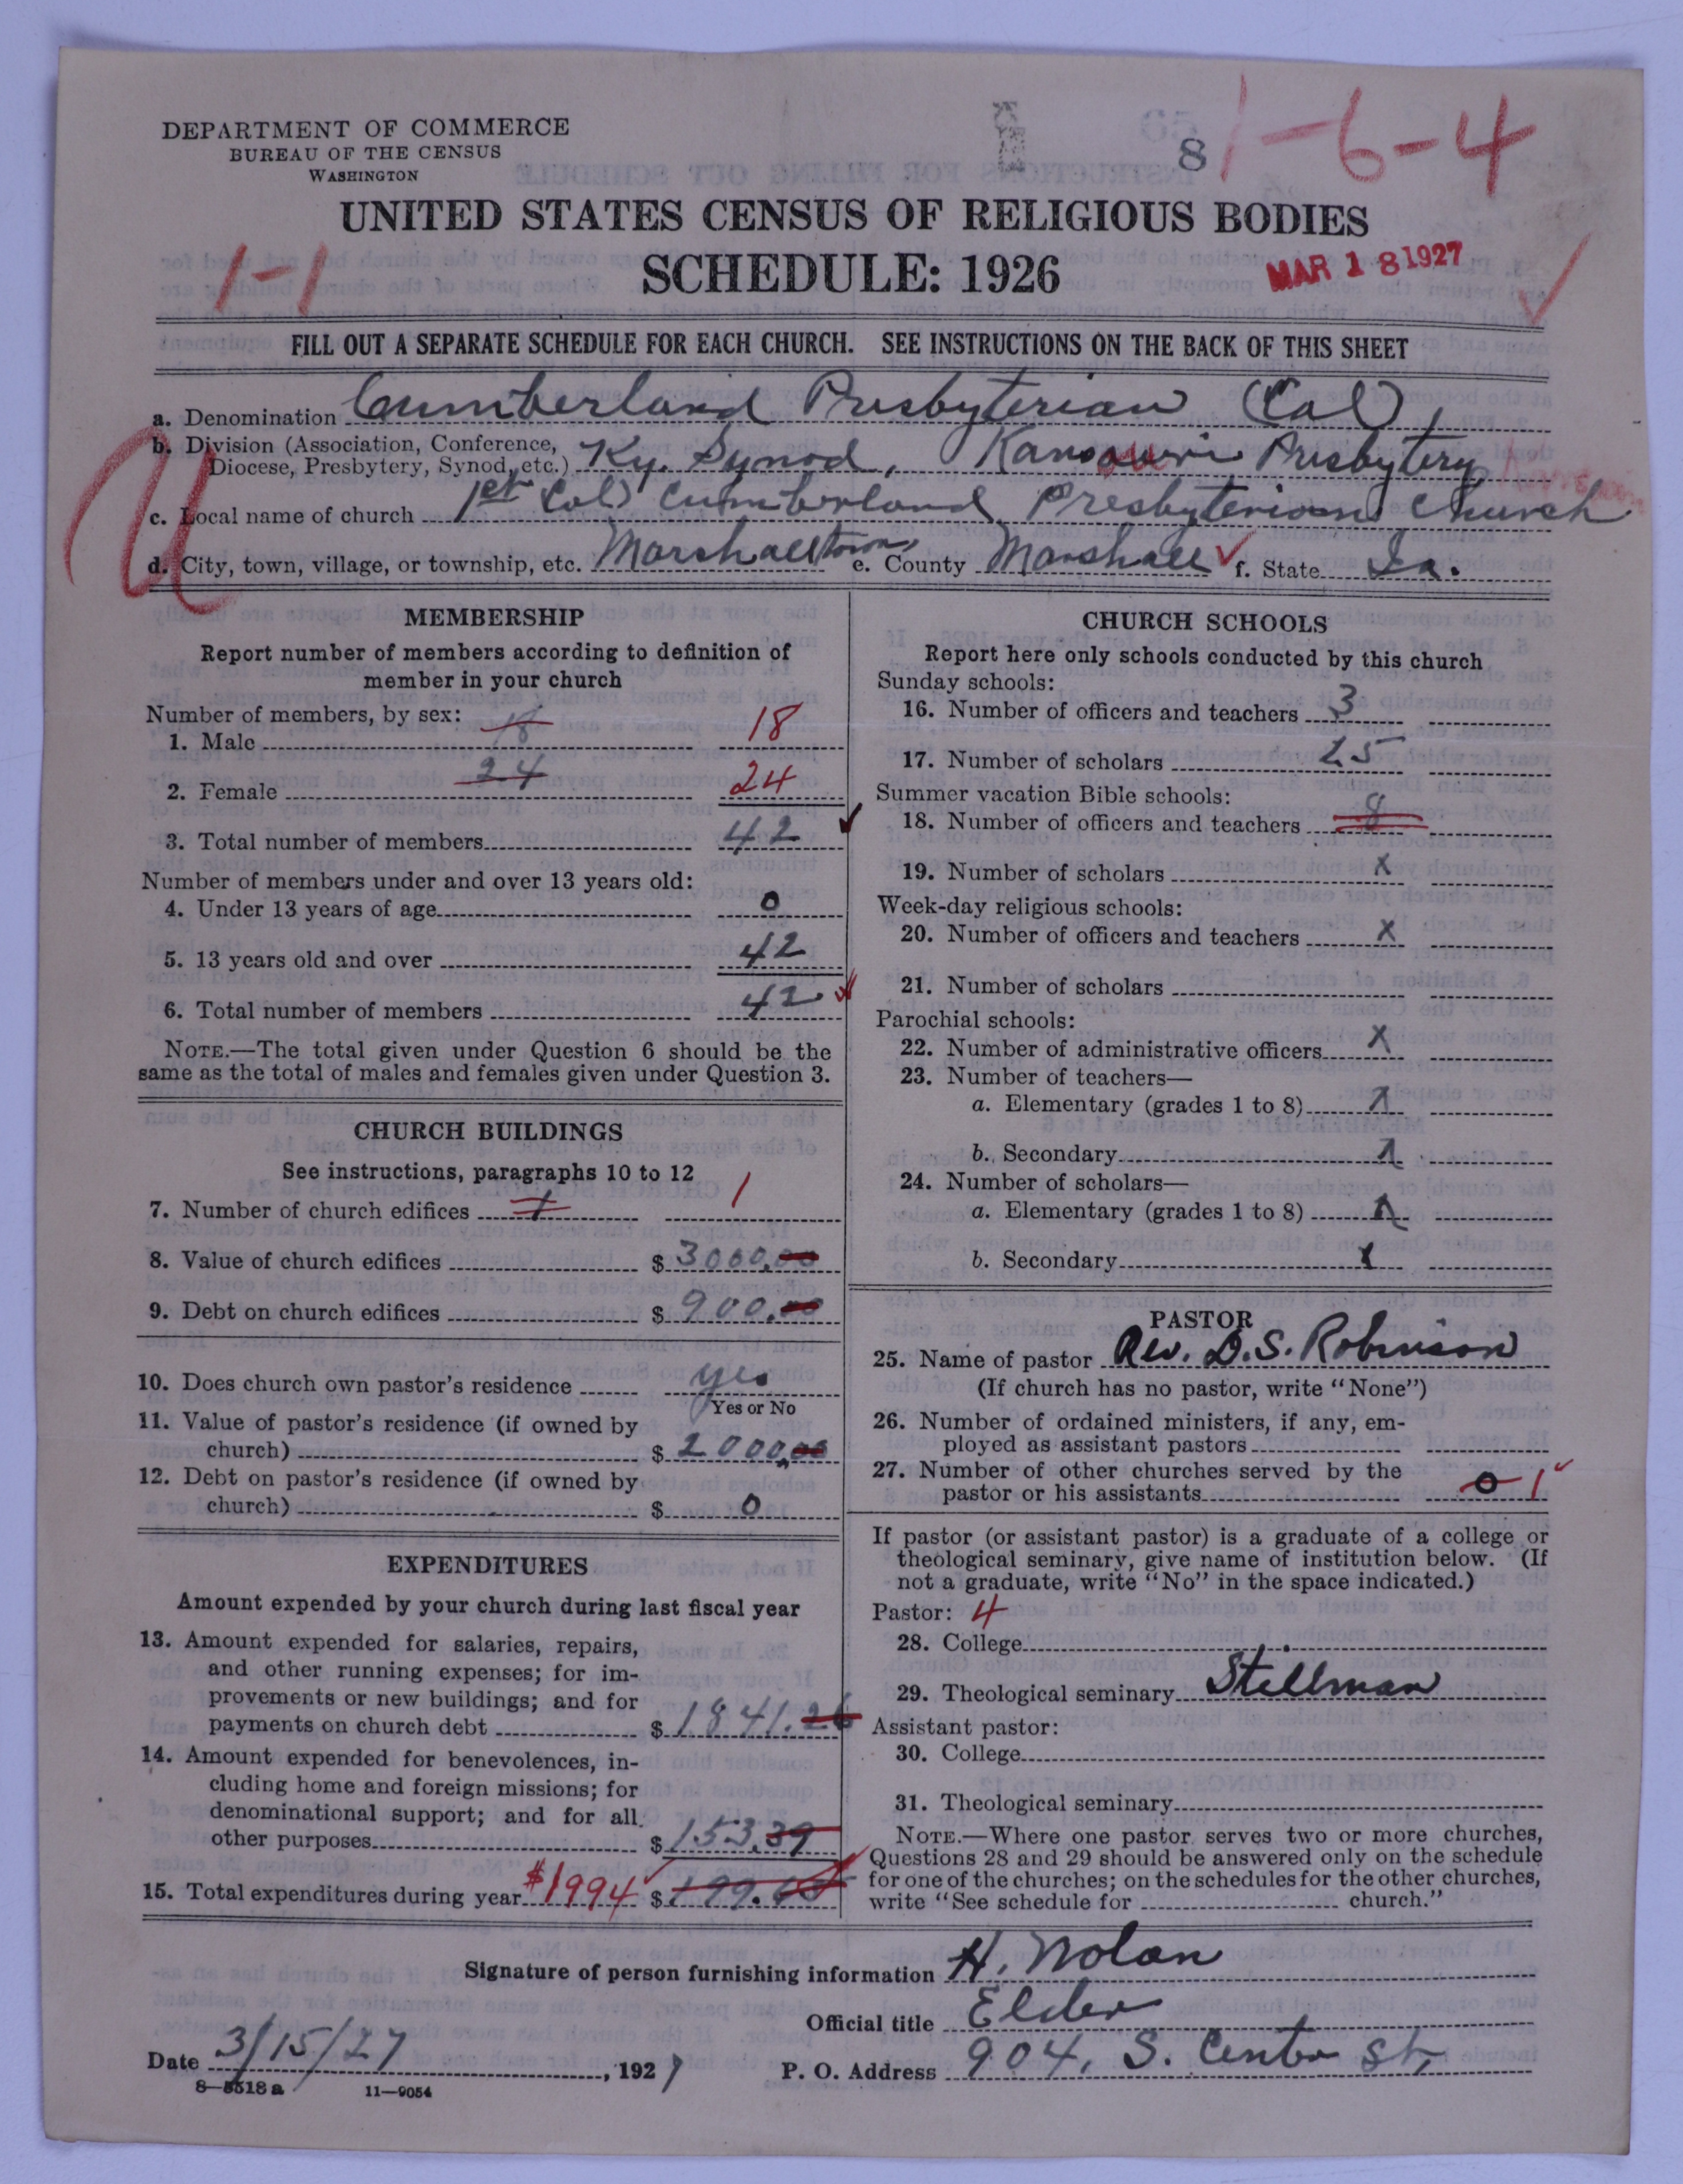 DEPARTMENT OF COMMERCE
BUREAU OF THE CENSUS
WASHINGTON
8
1-6-4
UNITED STATES CENSUS OF RELIGIOUS BODIES
1-1
SCHEDULE: 1926
MAR 18 1927
FILL OUT A SEPARATE SCHEDULE FOR EACH CHURCH. SEE INSTRUCTIONS ON THE BACK OF THIS SHEET
a. Denomination Cumberland Presbyterian (Col)
b. Division (Association, Conference, Diocese, Presbytery, Synod, etc.) Ky. Synod, Presbytery
c. Local name of church 1st Col) Cumberland Presbyterian Church
d. City, town, village, or township, etc. Marshalltown, e. County Marshall f. State Ia.
MEMBERSHIP
Report number of members according to definition of
member in your church
Number of members, by sex:
1. Male 18 18
2. Female 24 24
3. Total number of members 42
Number of members under and over 13 years old:
4. Under 13 years of age 0
5. 13 years old and over 42
6. Total number of members 42
NOTE.—The total given under Question 6 should be the
same as the total of males and females given under Question 3.
CHURCH BUILDINGS
See instructions, paragraphs 10 to 12
7. Number of church edifices 1 1
8. Value of church edifices $ 3000.00
9. Debt on church edifices $ 900.00
10. Does church own pastor's residence yes
Yes or No
11. Value of pastor's residence (if owned by
church) $ 2000.00
12. Debt on pastor's residence (if owned by
church) $ 0
EXPENDITURES
Amount expended by your church during last fiscal year
13. Amount expended for salaries, repairs,
and other running expenses; for im-
provements or new buildings; and for
payments on church debt $ 1841.26
14. Amount expended for benevolences, in-
cluding home and foreign missions; for
denominational support; and for all
other purposes $ 153.39
15. Total expenditures during year $1994 $
CHURCH SCHOOLS
Report here only schools conducted by this church
Sunday schools:
16. Number of officers and teachers 3
17. Number of scholars 25
Summer vacation Bible schools:
18. Number of officers and teachers 8
19. Number of scholars x
Week-day religious schools:
20. Number of officers and teachers x
21. Number of scholars
Parochial schools:
22. Number of administrative officers x
23. Number of teachers—
a. Elementary (grades 1 to 8) x
b. Secondary x
24. Number of scholars—
a. Elementary (grades 1 to 8) x
b. Secondary x
PASTOR
25. Name of pastor Rev. D. S. Robinson
(If church has no pastor, write "None")
26. Number of ordained ministers, if any, em-
ployed as assistant pastors
27. Number of other churches served by the
pastor or his assistants 0 1
If pastor (or assistant pastor) is a graduate of a college or
theological seminary, give name of institution below. (If
not a graduate, write "No" in the space indicated.)
Pastor: 4
28. College
29. Theological seminary Stillman
Assistant pastor:
30. College
31. Theological seminary
NOTE.—Where one pastor serves two or more churches,
Questions 28 and 29 should be answered only on the schedule
for one of the churches; on the schedules for the other churches,
write "See schedule for church."
Signature of person furnishing information H. Nolan
Official title Elder
Date 3/15/27, 1927 P. O. Address 904, S. Center St.
8-5518 a 11-9054